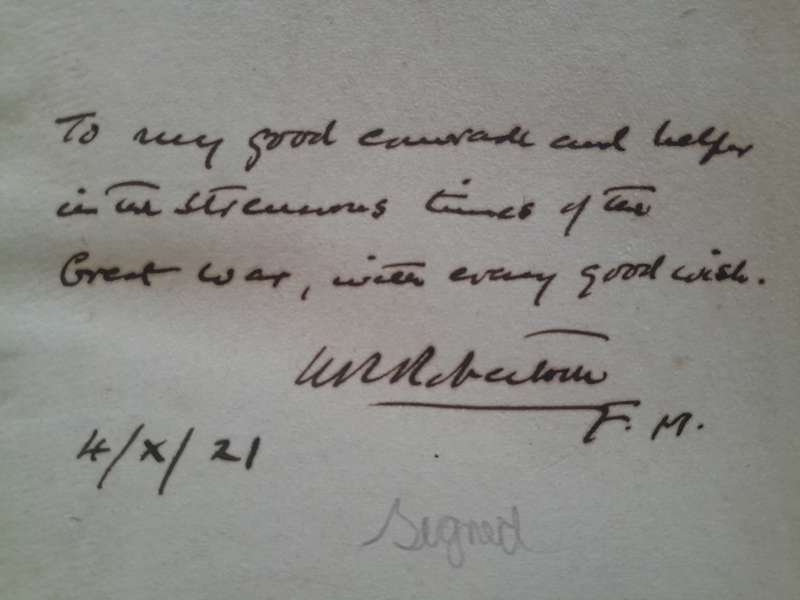 To my good comrade and helper
in the strenuous times of the
Great War, with every good wish.
W R Robertson
F. M.
4/X/21
Signed